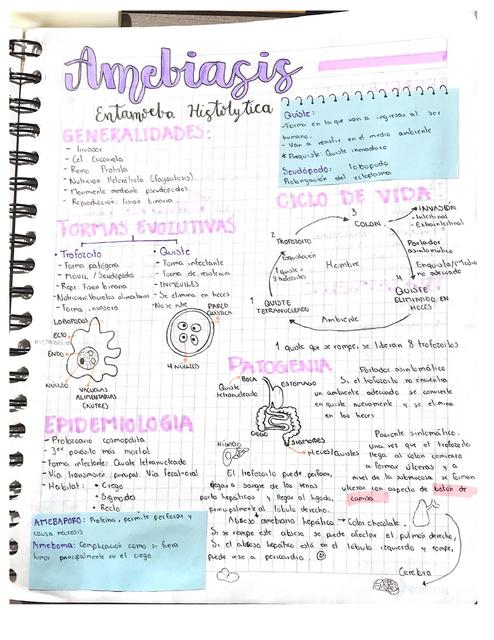 Amebiasis
Entamoeba Histolytica
Quiste:
- Forma en la que van a regresar al ser
humano.
- Van a resistir en el medio ambiente
* Requisito: Quiste inmaduro
Seudópodo: lobopodo
Prolongación del ectoplasma
GENERALIDADES:
- Invasor
- Cel. Eucariota
- Reino Protista
- Nutrición Heterótrofa (fagocitosis)
- Movimiento mediante pseudópodos
- Reproducción: fisión binaria
FORMAS EVOLUTIVAS
• Trofozoito
- Forma patógena
- MÓVIL / Seudópodos
- Repr: fisión binaria
- Nutrición: Vacuolas alimentarias
- Forma invasora
• Quiste
- Forma infectante
- Forma de resistencia
- INMÓVILES
- Se elimina en heces
- No se nutre
LOBOPODOS
ECTO
ENDO
NÚCLEO
VACUOLAS
ALIMENTARIAS
(NUTRE)
PARED
QUÍSTICA
4 NÚCLEOS
CICLO DE VIDA
3
COLON
INVASIÓN
- Intestinal
- Extraintestinal
Portador
asintomático
Enquista/medio
no adecuado
4
QUISTE
ELIMINADO EN
HECES
2
TROFOZOITO
1 quiste =
8 trofozoitos
Hombre
1
QUISTE
TETRANUCLEADO
Ambiente
1 quiste que se rompe, se liberan 8 trofozoitos
PATOGENIA
BOCA
Quiste
tetranucleado
ESTÓMAGO
CIEGO
SIGMOIDES
Heces/Quistes
HÍGADO
Portador asintomático
Si el trofozoito no encuentra
un ambiente adecuado se convierte
en quiste nuevamente y se elimina
en las heces
Paciente sintomático:
una vez que el trofozoito
llega al colon comienza
a formar úlceras y a
nivel de la submucosa se forman
úlceras con aspecto de botón de
camisa
El trofozoito puede perforar,
llegan a sangre de las venas
porta hepáticas y llegar al hígado,
principalmente al lóbulo derecho.
Absceso amebiano hepático → Color chocolate.
Si se rompe este absceso se puede afectar el pulmón derecho,
Si el absceso hepático está en el lóbulo izquierdo y rompe,
puede irse a pericardio.
Cerebro
EPIDEMIOLOGIA
- Protozoario cosmopolita
- 3er parásito más mortal
- Forma infectante: Quiste tetranucleado
- Vía transmisión principal: Vía fecal-oral
- Habitat: • Ciego
• Sigmoides
• Recto
AMEBAPORO: Proteína, permite perforar y
causa necrosis
Ameboma: Complicación como si fuera
tumor principalmente en el ciego
Norma